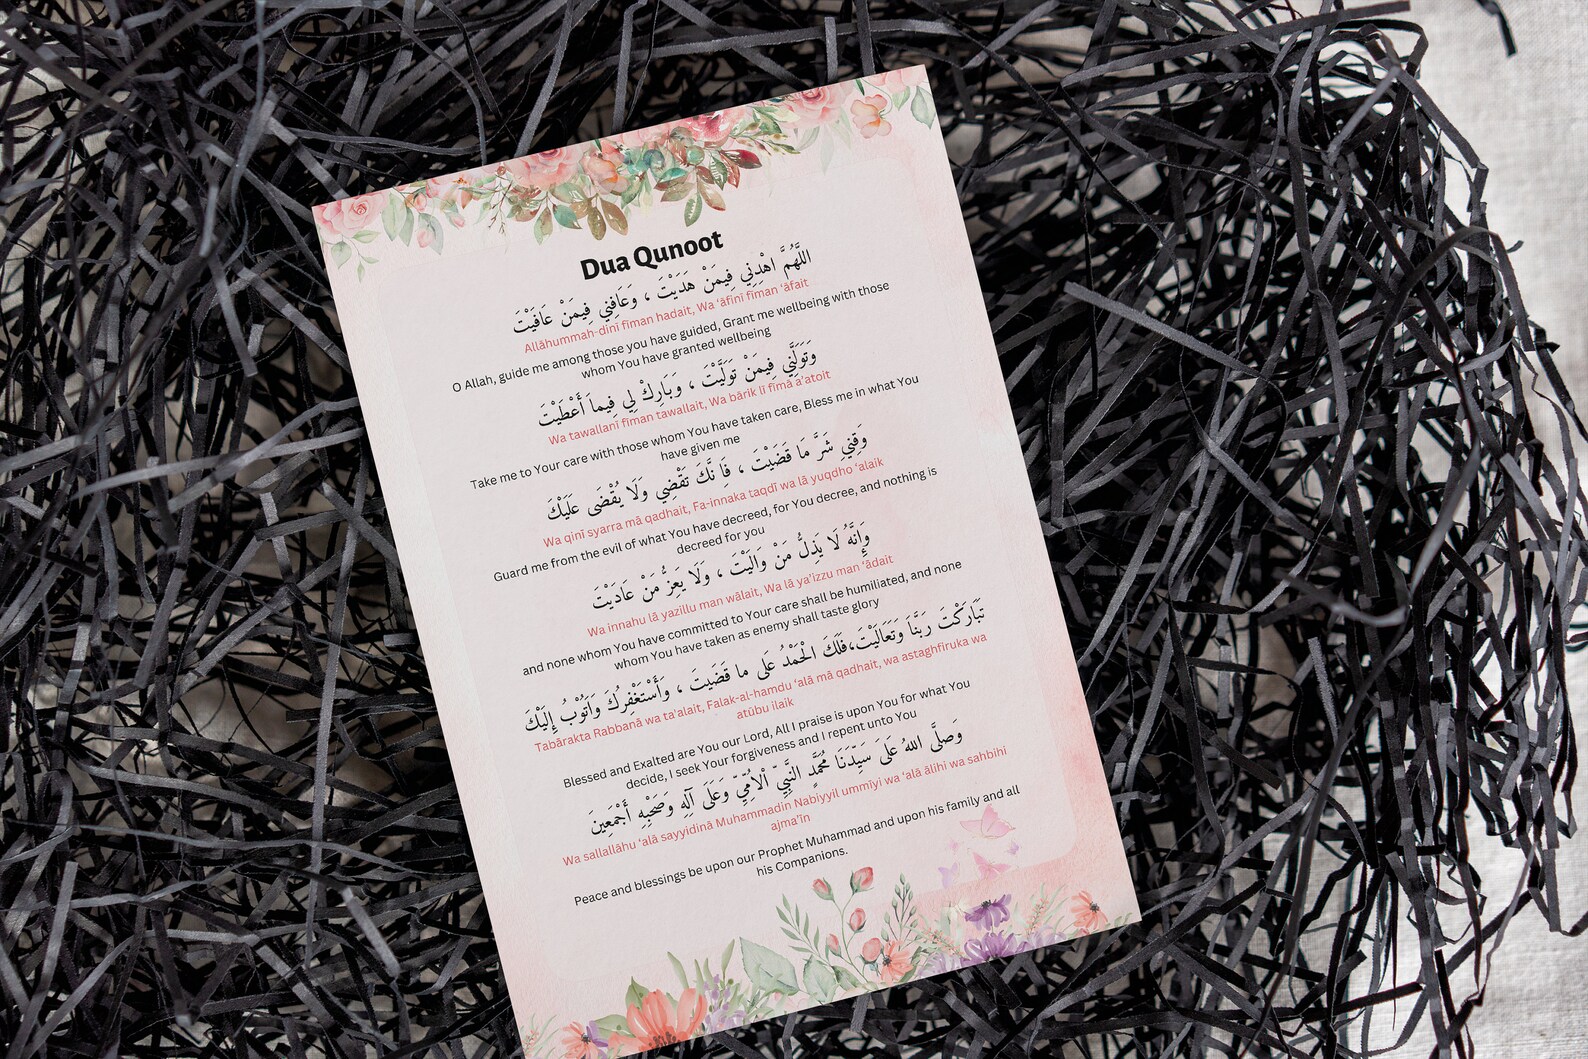 Dua Qunoot
اللَّهُمَّ اهْدِنِي فِيمَنْ هَدَيْتَ ، وَعَافِنِي فِيمَنْ عَافَيْتَ
Allāhummah-dinī fīman hadait, Wa ‘āfinī fīman ‘āfait
O Allah, guide me among those you have guided, Grant me wellbeing with those
whom You have granted wellbeing
وَتَوَلَّنِي فِيمَنْ تَوَلَّيْتَ ، وَبَارِكْ لِي فِيمَا أَعْطَيْتَ
Wa tawallanī fīman tawallait, Wa bārik lī fīmā a’atoit
Take me to Your care with those whom You have taken care, Bless me in what You
have given me
وَقِنِي شَرَّ مَا قَضَيْتَ ، فَاِ نَّكَ تَقْضِي وَلَا يُقْضَى عَلَيْكَ
Wa qinī syarra mā qadhait, Fa-innaka taqdī wa lā yuqdho ‘alaik
Guard me from the evil of what You have decreed, for You decree, and nothing is
decreed for you
وَإِنَّهُ لَا يَذِلُّ مَنْ وَالَيْتَ ، وَلَا يَعِزُّ مَنْ عَادَيْتَ
Wa innahu lā yazillu man wālait, Wa lā ya’izzu man ‘ādait
and none whom You have committed to Your care shall be humiliated, and none
whom You have taken as enemy shall taste glory
تَبَارَكْتَ رَبَّنَا وَتَعَالَيْتَ،فَلَكَ الْحَمْدُ عَلَى ما قَضَيتَ ، وَأَسْتَغْفِرُكَ وَاَتُوْبُ إِلَيْكَ
Tabārakta Rabbanā wa ta’alait, Falak-al-hamdu ‘alā mā qadhait, wa astaghfiruka wa
atūbu ilaik
Blessed and Exalted are You our Lord, All I praise is upon You for what You
decide, I seek Your forgiveness and I repent unto You
وَصَلَّى اللهُ عَلَىَ سَيِّدَنَا مُحَمَّدٍ النَّبِيِّ اْلاُمِّيِّ وَعَلَىَ آلِهِ وَصَحْبِهِ أَجْمَعِينَ
Wa sallallāhu ‘alā sayyidinā Muhammadin Nabiyyil ummīyi wa ‘alā ālihi wa sahbihi
ajma’īn
Peace and blessings be upon our Prophet Muhammad and upon his family and all
his Companions.